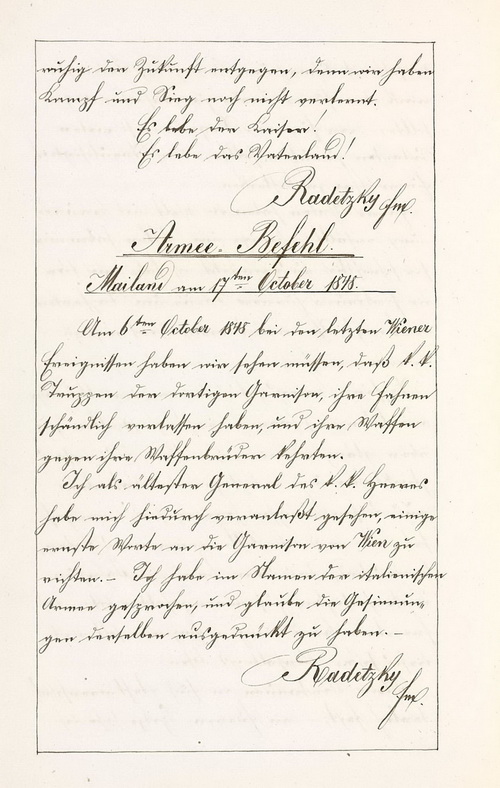 ruhig der Zukunft entgegen, denn wir haben
Kampf und Sieg noch nicht verlernt.
Es lebe der Kaiser!
Es lebe das Vaterland!
Radetzky fm.
Armee-Befehl.
Mailand am 17ten October 1848.
Am 6ten October 1848 bei den letzten Wiener
Ereignissen haben wir sehen müssen, daß k. k.
Truppen der dortigen Garnison, ihre Fahnen
schändlich verlassen haben, und ihre Waffen
gegen ihre Waffenbrüder kehrten.
Ich als ältester General des k. k. Heeres
habe mich hiedurch veranlaßt gesehen, einige
ernste Worte an die Garnison von Wien zu
richten. – Ich habe im Namen der italienischen
Armee gesprochen, und glaube die Gesinnun-
gen derselben ausgedrückt zu haben. –
Radetzky
fm.